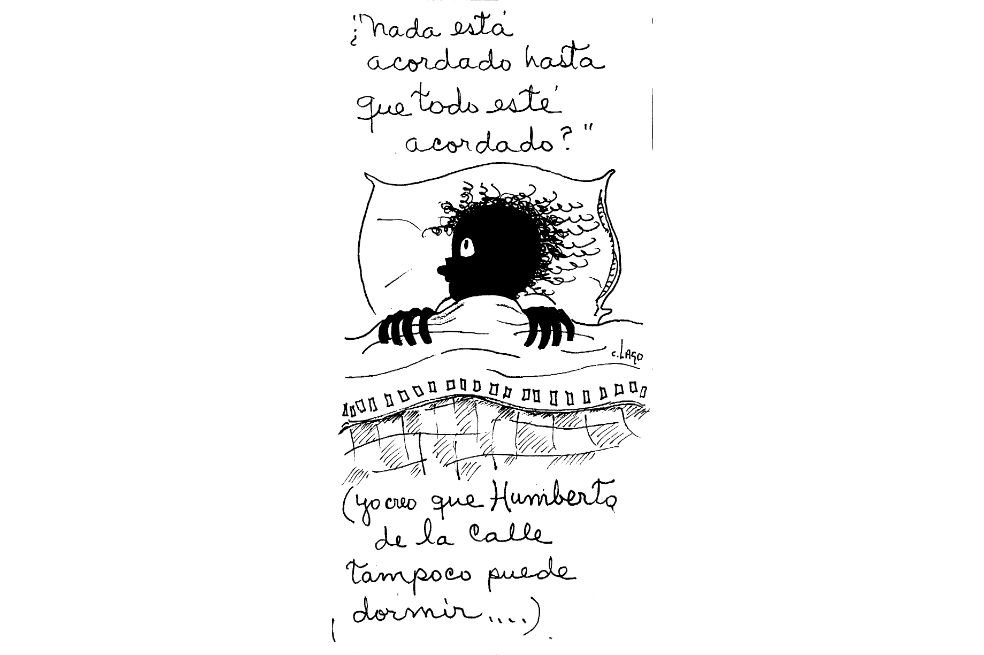 ¿"Nada está
acordado hasta
que todo esté
acordado?"
c. Lago
(yo creo que Humberto
de la Calle
tampoco puede
dormir....)